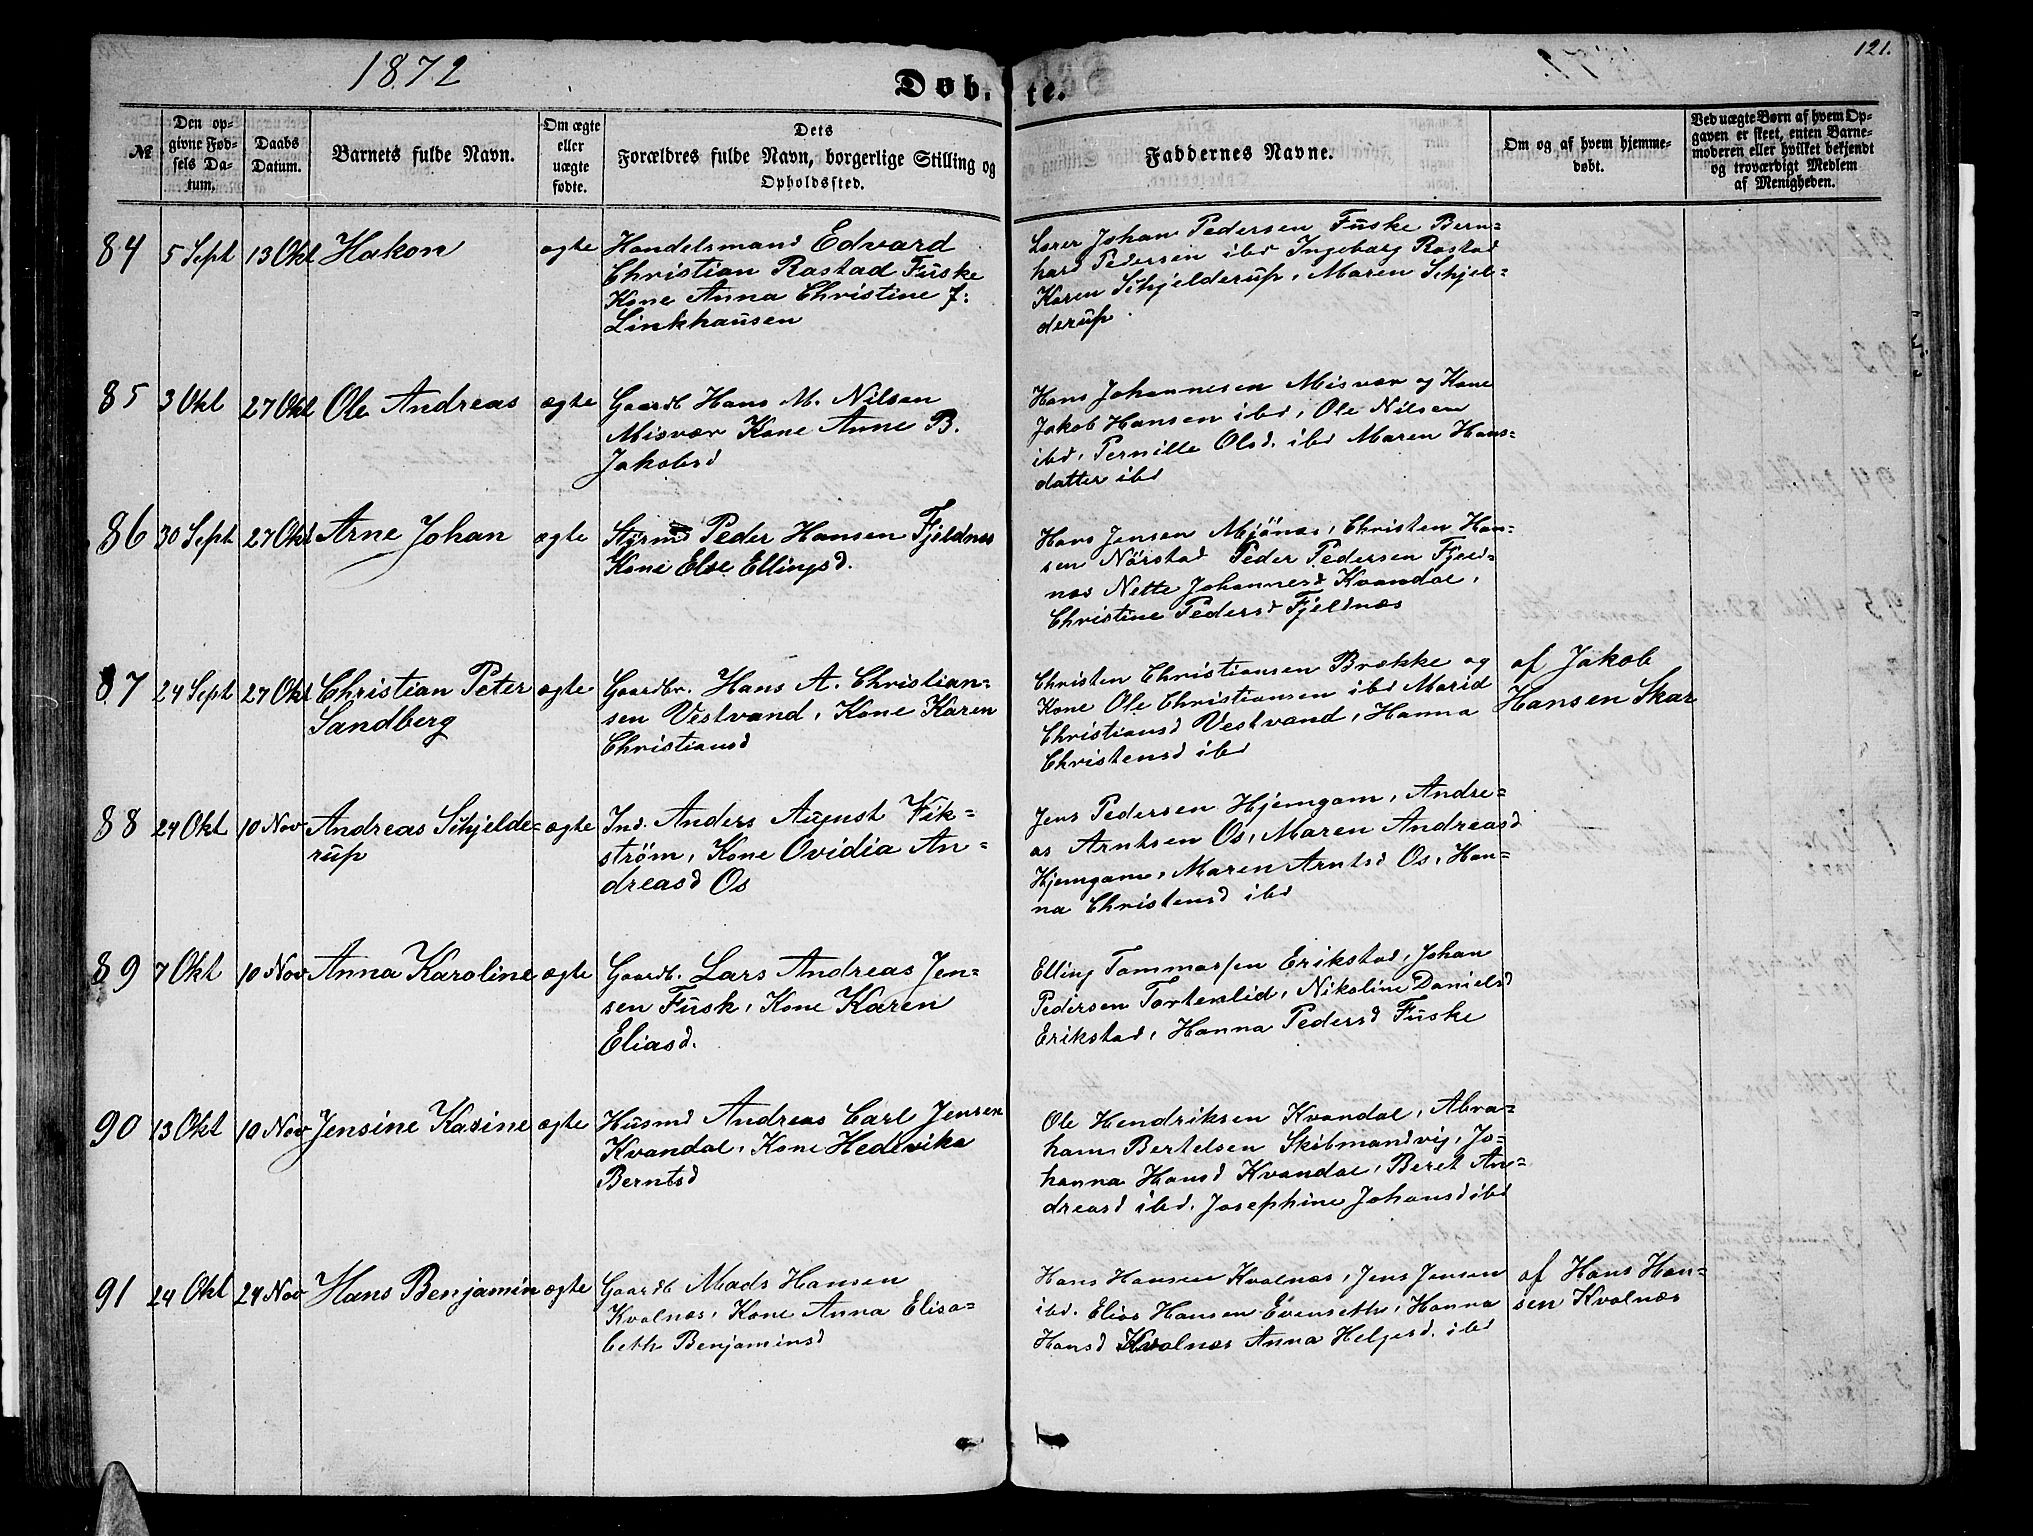 1872
Døb. te.
121.
№
Den op-
givne Fød-
sels Da-
tum.
Daabs
Datum.
Barnets fulde Navn.
Om ægte
eller
uægte
fødte.
Dets
Forældres fulde Navn, borgerlige Stilling og
Opholdssted.
Faddernes Navne.
Om og af hvem hjemme-
døbt.
Ved uægte Børn af hvem Op-
gaven er skeet, enten Barne-
moderen eller hvilket bekjendt
og troværdigt Medlem
af Menigheden.
84 5 Sept 13 Okt Hakon ægte
Handelsmand Edvard
Christian Rastad Fuske
Kone Anna Christine f:
Linkhausen
Lærer Johan Pedersen Fuske Bern=
hard Pedersen ibd Ingeborg Rastad
Karen Schjelderup, Maren Schjel=
derup.
85 3 Okt 27 Okt Ole Andreas ægte
Gaardb Hans M. Nilsen
Misvær Kone Anne B.
Jakobsd
Hans Johannesen Misvær og Kone
Jakob Hansen ibd, Ole Nilsen
ibd, Pernille Olsd. ibd Maren Hans=
datter ibd
86 30 Sept 27 Okt Arne Johan ægte
Styrmd Peder Hansen Fjeldnæs
Kone Else Ellingsd.
Hans Jensen Mjönæs, Christen Han=
sen Nörstad Peder Pedersen Fjeld=
næs Nette Johannesd Kvandal,
Christine Pedersd Fjeldnæs
87 24 Sept 27 Okt Christian Peter ægte
Sandberg
Gaardbr. Hans A. Christian=
sen Vestvand, Kone Karen
Christiansd
Christen Christiansen Brække og
Kone Ole Christiansen ibd Marid
Christiansd Vestvand, Hanna
Christensd ibd
af Jakob
Hansen Skar
88 24 Okt 10 Nov Andreas Schjelde= ægte
rup
Ind. Anders August Vik=
ström, Kone Ovidia An=
dreasd Os
Jens Pedersen Hjemgam, Andre=
as Arntsen Os, Maren Andreasd
Hjemgam, Maren Arntsd Os, Han=
na Christensd ibd
89 7 Okt 10 Nov Anna Karoline ægte
Gaardb. Lars Andreas Jen=
sen Fusk, Kone Karen
Eliasd.
Elling Tommassen Erikstad, Johan
Pedersen Tortenlid, Nikoline Danielsd
Erikstad, Hanna Pedersd Fuske
90 13 Okt 10 Nov Jensine Kasine ægte
Husmd Andreas Carl Jensen
Kvandal, Kone Hedevika
Berntsd
Ole Hendriksen Kvandal, Abra=
ham Bertelsen Skibmandvig, Jo=
hanna Hansd Kvandal, Beret An=
dreasd ibd. Josephine Johansd ibd
91 24 Okt 24 Nov Hans Benjamin ægte
Gaardb Mads Hansen
Kvalnæs, Kone Anna Elisa=
beth Benjaminsd
Hans Hansen Kvalnæs, Jens Jensen
ibd. Elias Hansen Evenseth, Hanna
Hansd Kvalnæs Anna Helgesd. ibd
af Hans Han=
sen Kvalnæs